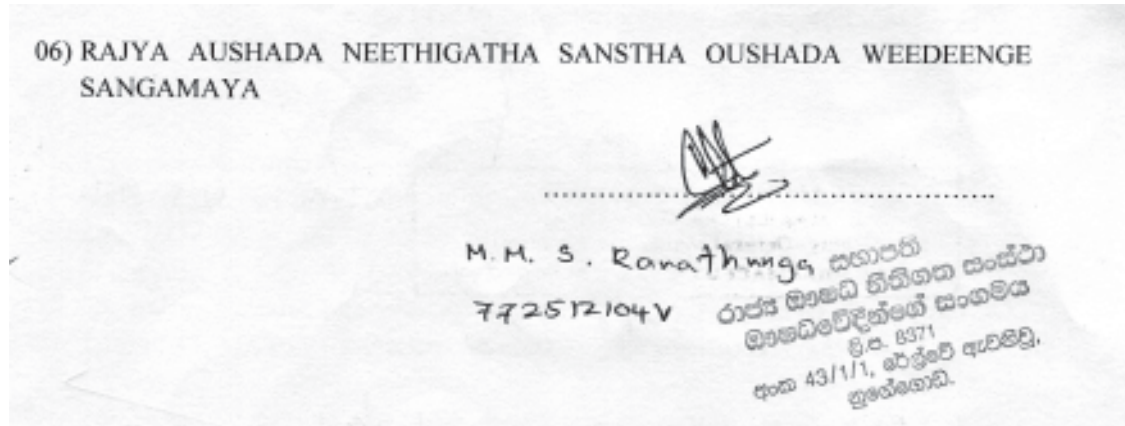 06) RAJYA AUSHADA NEETHIGATHA SANSTHA OUSHADA WEEDEENGE
SANGAMAYA
M. M. S. Ranathunga
772512104V
සභාපති
රාජ්‍ය ඖෂධ නීතිගත සංස්ථා
ඖෂධවේදීන්ගේ සංගමය
ලි.ප. 8371
අංක 43/1/1, රේල්වේ ඇවනිව්,
නුගේගොඩ.